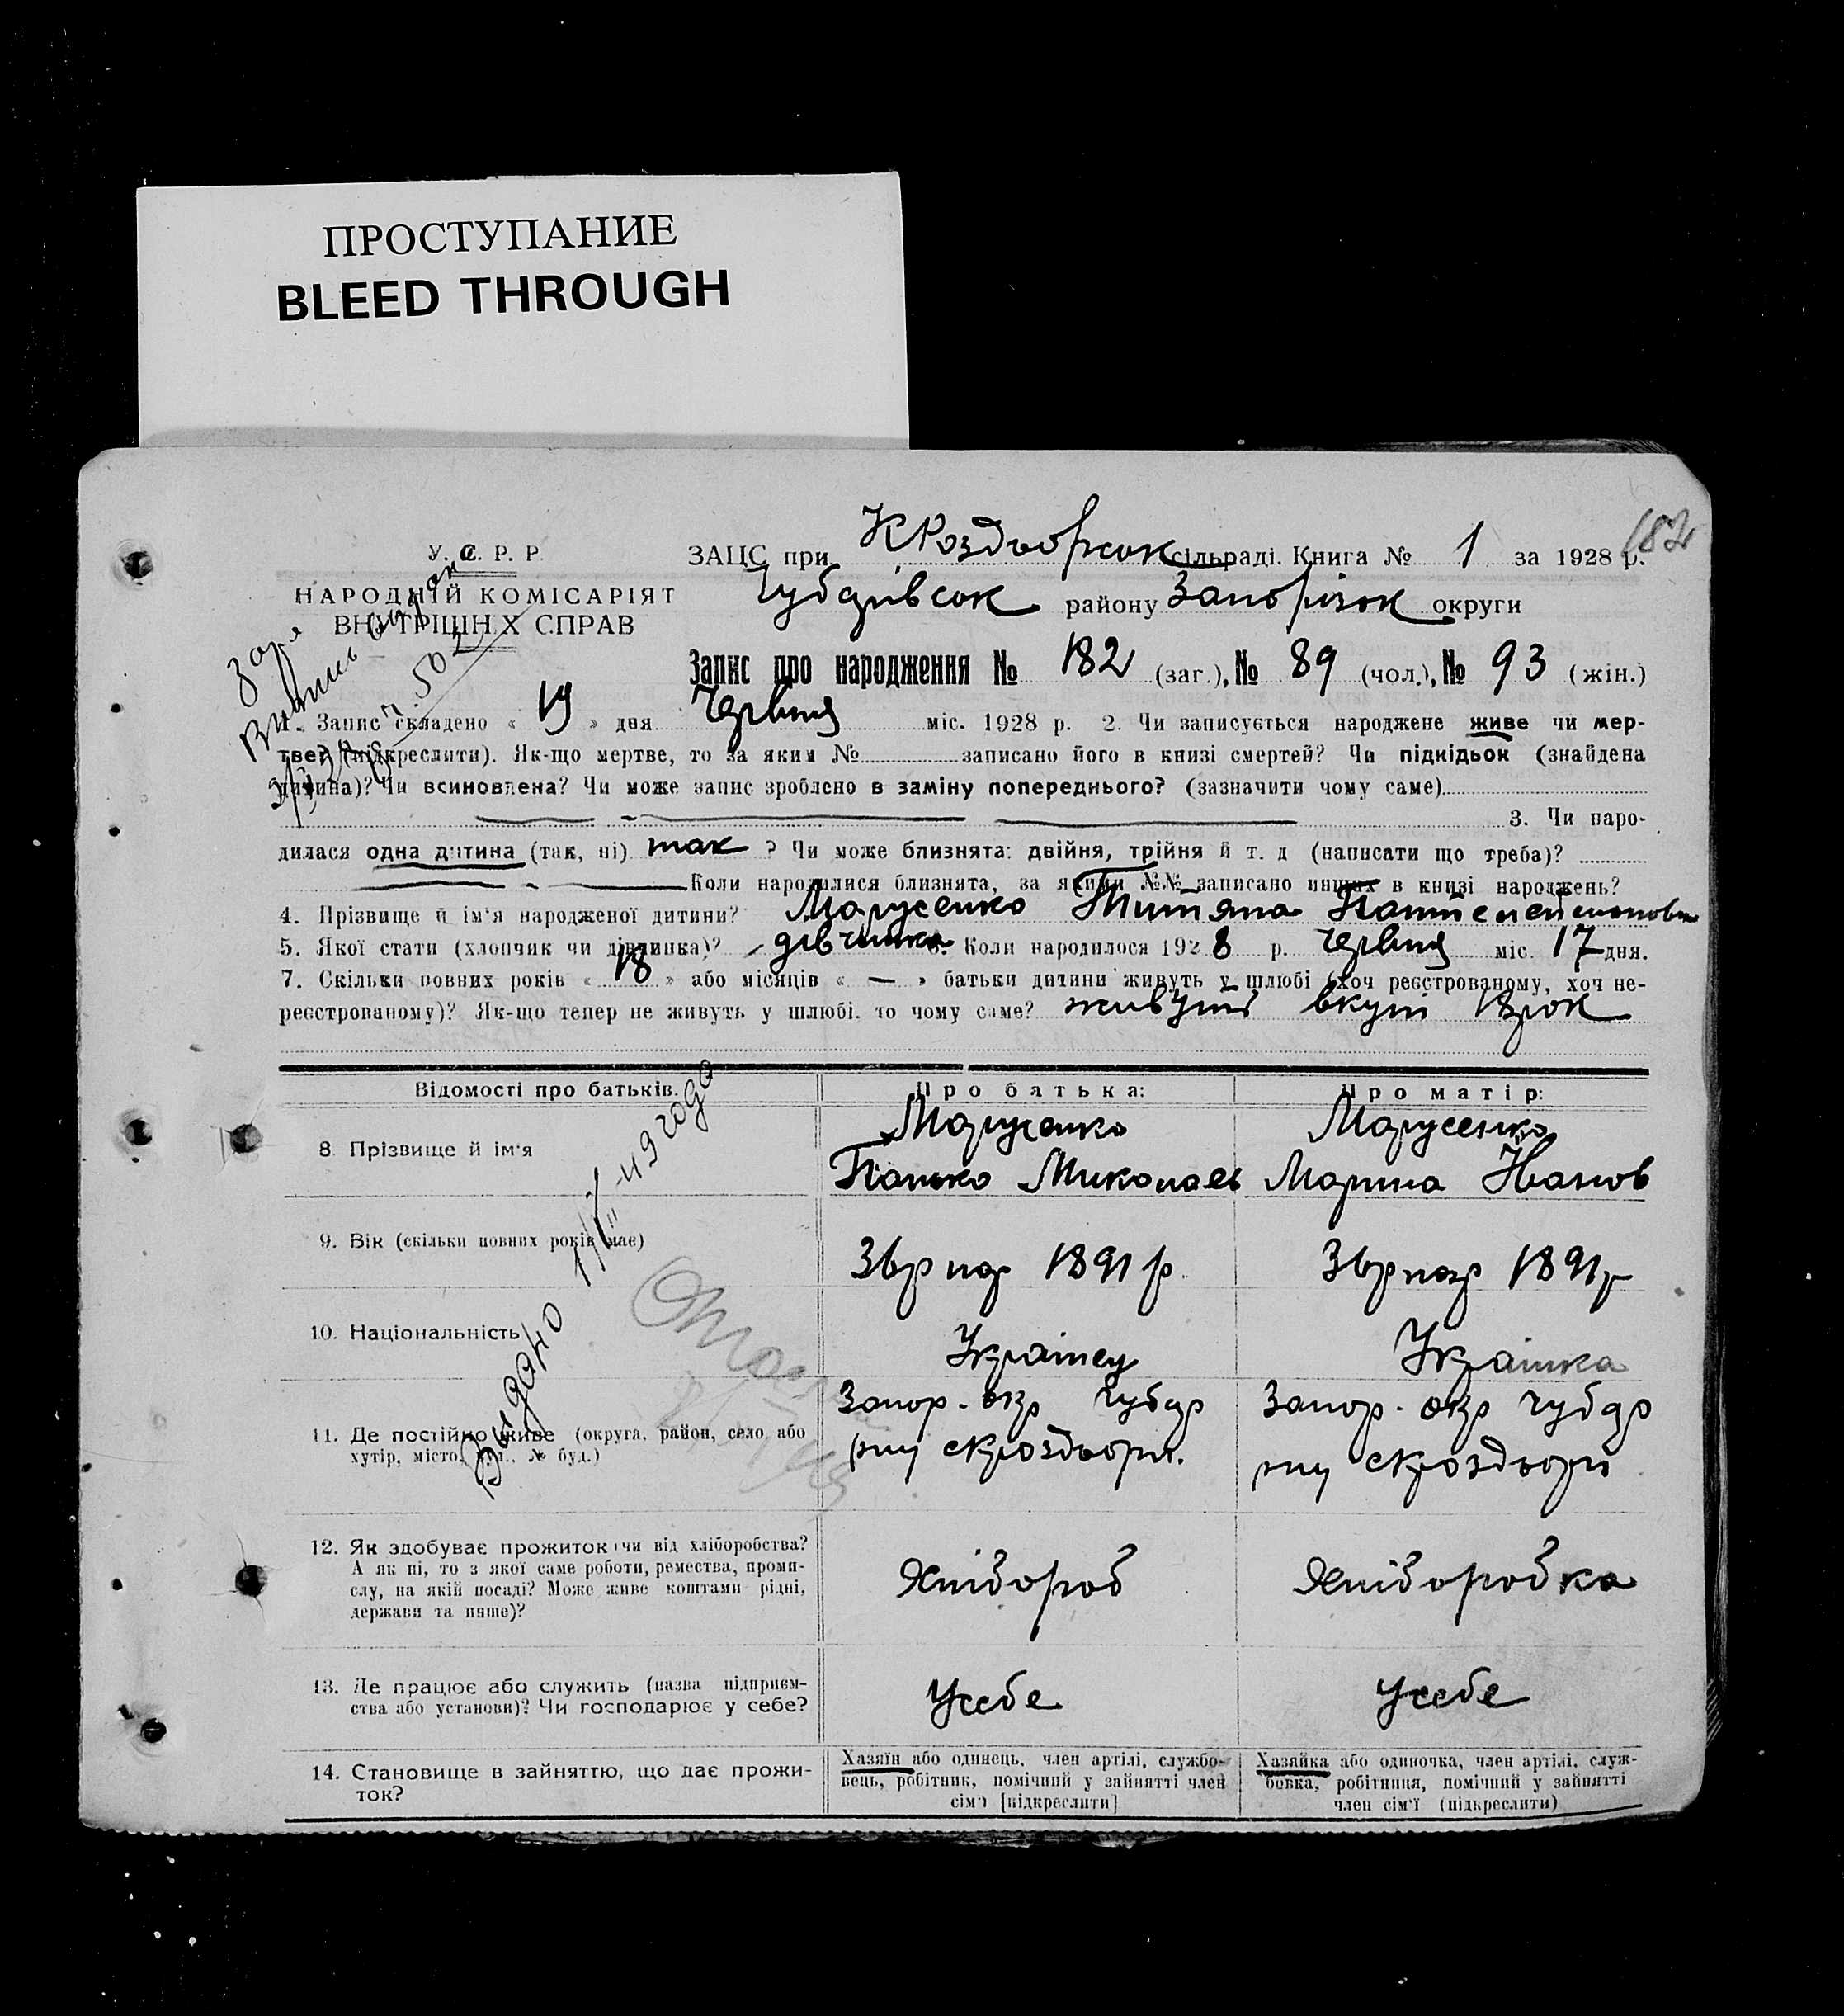 ПРОСТУПАНИЕ
BLEED THROUGH
182
У. С. Р. Р.
НАРОДНІЙ КОМІСАРІЯТ
ВНУТРІШНІХ СПРАВ
ЗАЦС при К Роздворськ сільраді. Книга № 1 за 1928 р.
району Запорізьк округи
Запис про народження № 182 (заг.), № 89 (чол.), № 93 (жін.)
1. Запис складено « 19 » дня Червня міс. 1928 р. 2. Чи записується народжене живе чи мер-
тве? (підкреслити). Як-що мертве, то за яким № записано його в книзі смертей? Чи підкідьок (знайдена
дитина)? Чи всиновлена? Чи може запис зроблено в заміну попереднього? (зазначити чому саме)
3. Чи наро-
дилася одна дитина (так, ні) так ? Чи може близнята: двійня, трійня й т. д (написати що треба)?
Коли народилися близнята, за якими №№ записано инших в книзі народжень?
4. Прізвище й ім'я народженої дитини? Марусенко Титяна
5. Якої стати (хлопчик чи дівчинка)? дівчинка 6. Коли народилося 1928 р. Червня міс. 17 дня.
7. Скільки повних років « 18 » або місяців « — » батьки дитини живуть у шлюбі (хоч реєстрованому, хоч не-
реєстрованому)? Як-що тепер не живуть у шлюбі, то чому саме? живуть вкупі 18 рок
Відомості про батьків. Про батька: Про матір:
8. Прізвище й ім'я Марусенко Панько Миколаєв Марусенко Марина Іванов
9. Вік (скільки повних років має) 1891 р. 1891 р
10. Національність Українец Українка
11. Де постійно живе (округа, район, село або
хутір, місто, вул., № буд.)
Запор. окр Чубар Запор. окр Чубар
рну скроздори. рну скроздори
12. Як здобуває прожиток: чи від хліборобства?
А як ні, то з якої саме роботи, ремества, проми-
слу, на якій посаді? Може живе коштами рідні,
держави та инше)?
Хлібороб Хлоборобка
13. Де працює або служить (назва підприєм-
ства або установи)? Чи господарює у себе?
Усебе Усебе
14. Становище в зайняттю, що дає прожи-
ток?
Хазяїн або одинець, член артілі, службо-
вець, робітник, помічний у зайнятті член
сім'ї [підкреслити]
Хазяйка або одиночка, член артілі, служ-
бовка, робітниця, помічний у зайнятті
член сім'ї (підкреслити)
Видано
49 года